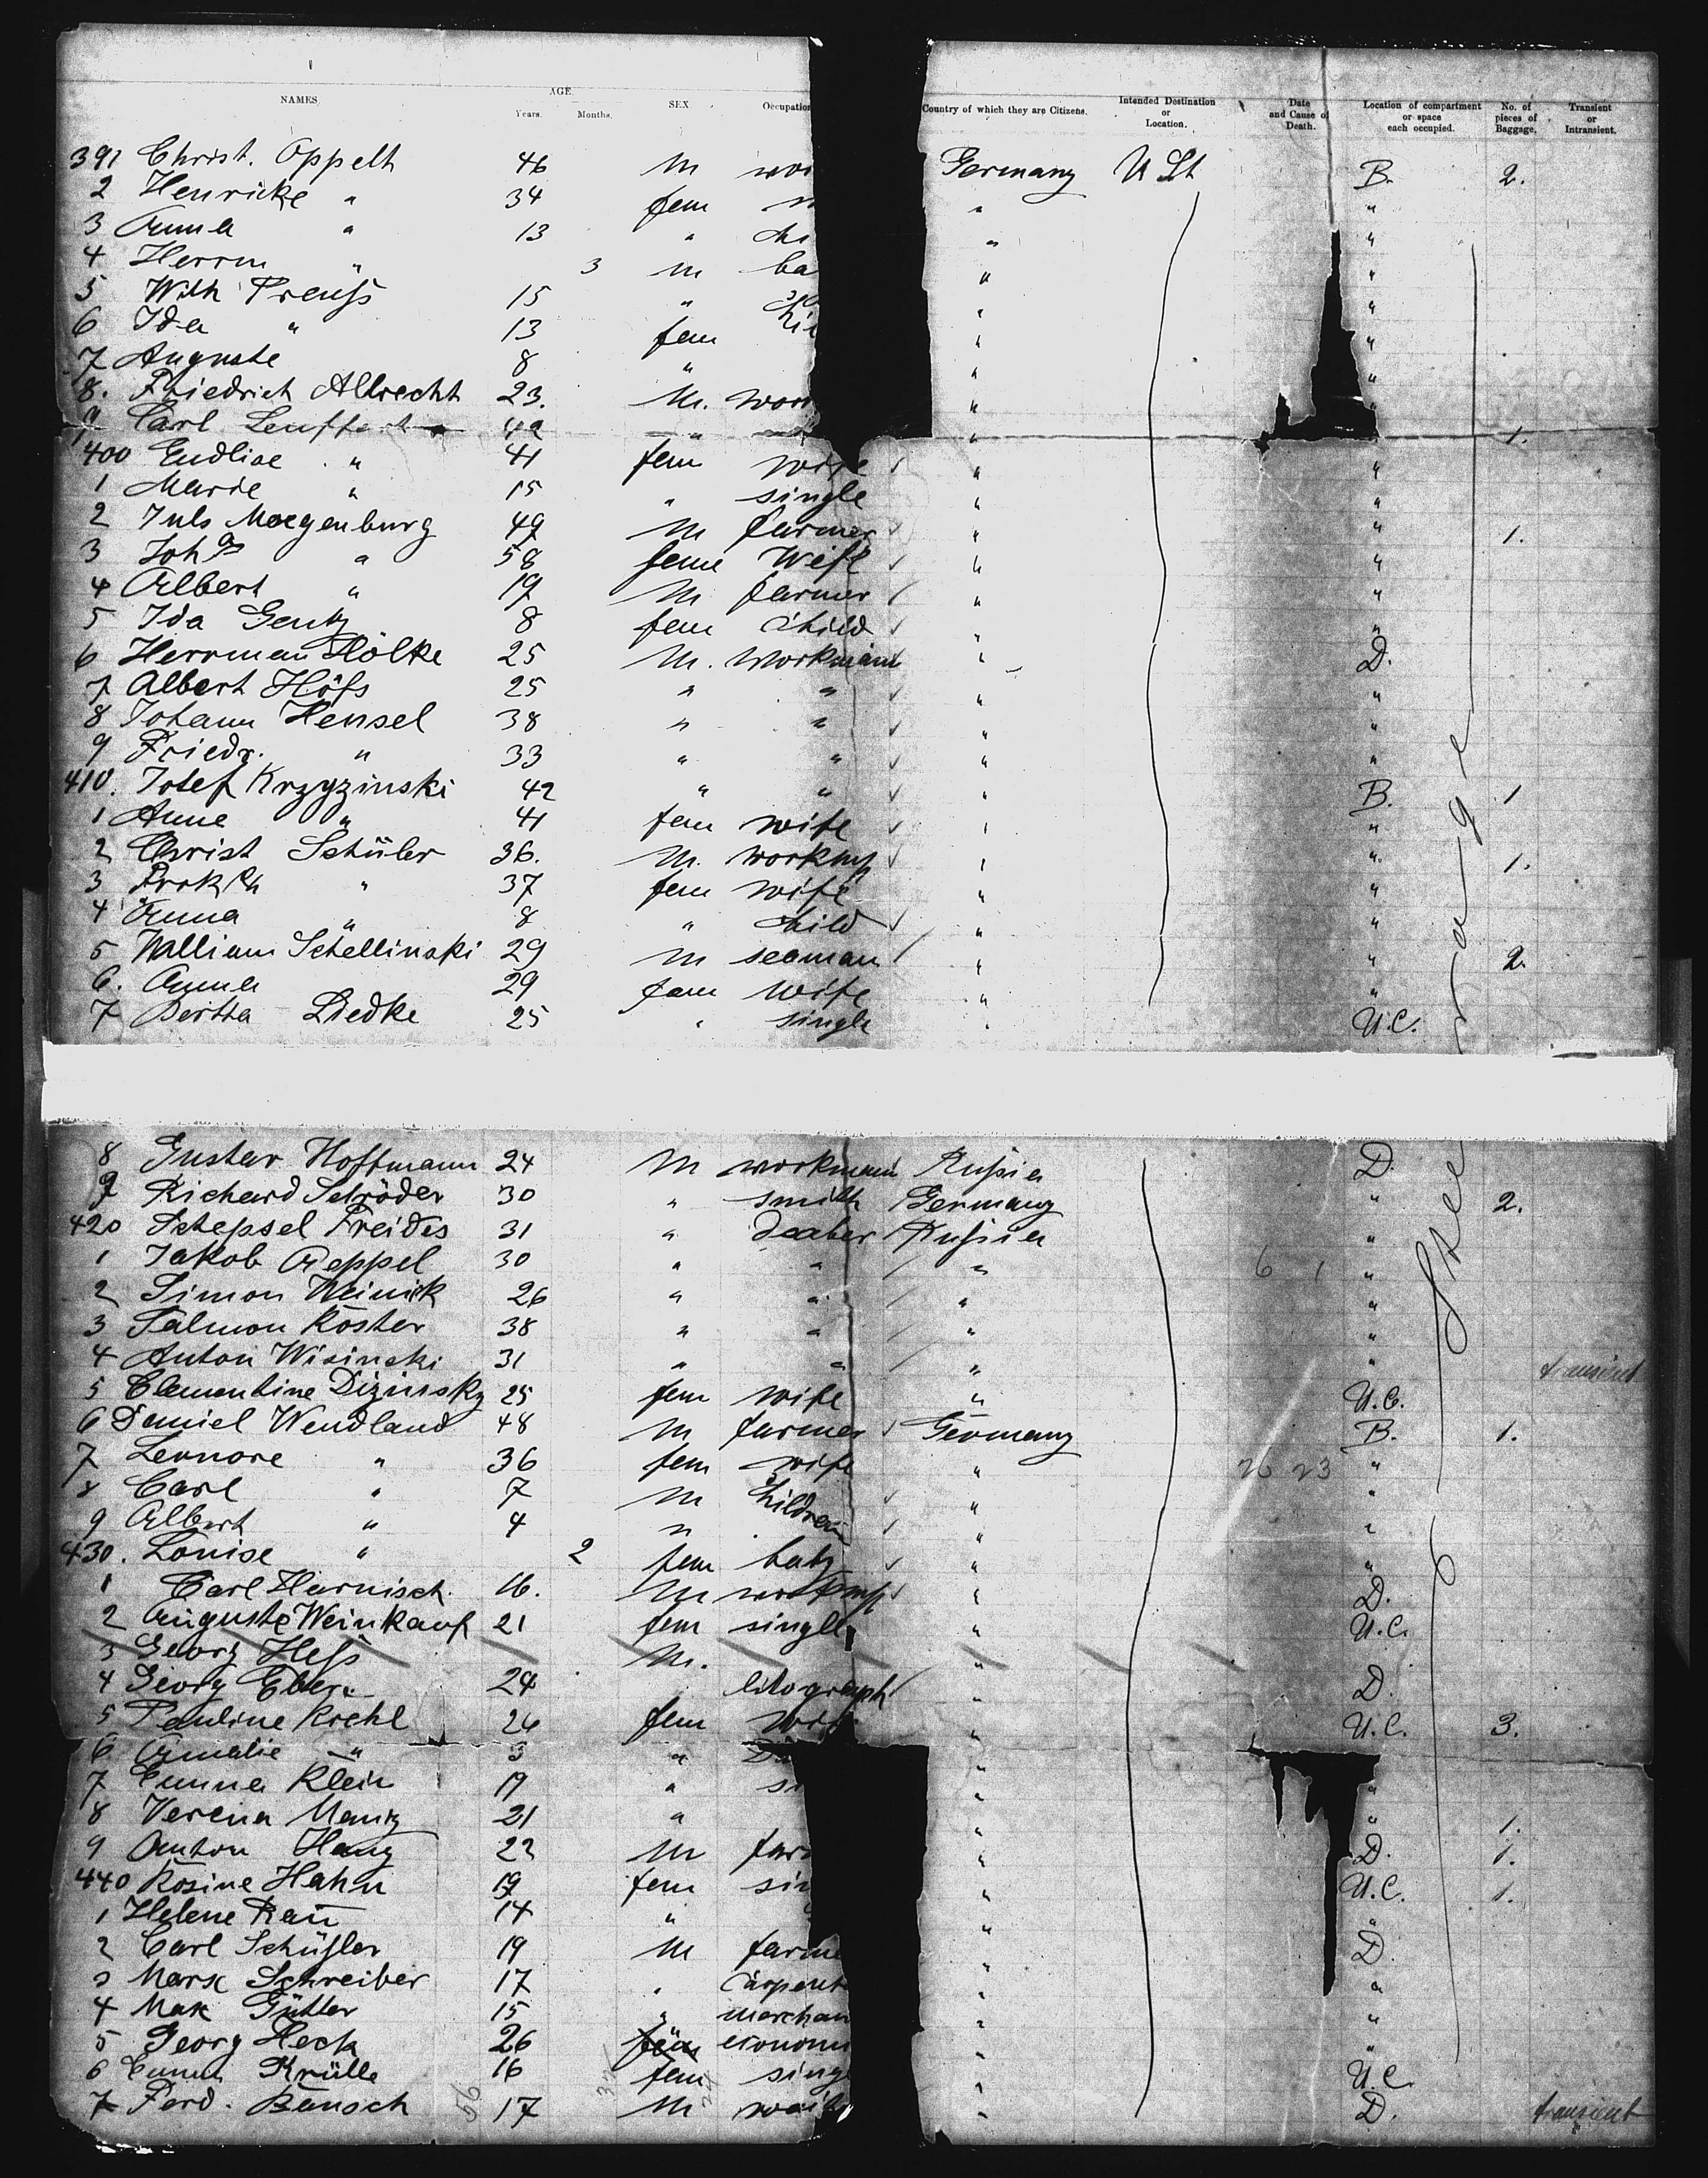 NAMES, AGE. Years. Months. SEX Occupation Country of which they are Citizens. Intended Destination or Location. Date and Cause of Death. Location of compartment or space each occupied. No. of pieces of Baggage. Transient or Intransient.
391 Christ. Oppelt 46 m wor Germany U St B. 2.
2 Henricke " 34 fem " "
3 Anna " 13 " chi " "
4 Herrm " 3 m ba " "
5 Wilh Preuß 15 " " "
6 Ida " 13 fem " "
7 Auguste 8 " " "
8. Friedrich Albrecht 23. M. wor " "
9 Carl Leuffert 42 " " 1.
400 " 41 fem wife " "
1 Marie " 15 " single " "
2 Juls Morgenburg 49 m farmer " " 1.
3 Joh " 58 feme Wife " "
4 Albert " 19 M farmer " "
5 Ida Gentz 8 fem child " "
6 Herrman Hölke 25 M. workman " D.
7 Albert Höfs 25 " " " "
8 Johann Hensel 38 " " " "
9 Friedr. " 33 " " " "
410. Josef Krzyzinski 42 " " " B. 1
1 Anne " 41 fem wife " "
2 Christ Schüler 36. M. workm " " 1.
3 " 37 fem wife " "
4 Anna " 8 " child " "
5 William Schellinski 29 m seaman " " 2.
6. Anna 29 fem wife " "
7 Bertha Liedke 25 " single " U.C.
8 Gustav Hoffmann 24 M workman Rußia D.
9 Richard Schröder 30 " smith Germany " 2.
420 Schepsel Preides 31 " dealer Rußia "
1 Jakob Aeppel 30 " " " 6 1 "
2 Simon Weinick 26 " " " "
3 Salmon Köster 38 " " " "
4 Anton Wisinski 31 " " " " transient
5 Clementine Dizinsky 25 fem wife " U.C.
6 Daniel Wendland 48 M farmer Germany B. 1.
7 Lennore " 36 fem wife " 20 23 "
8 Carl " 7 M Children " "
9 Albert " 4 " " "
430. Louise " 2 fem baby " "
1 Carl Harnisch 16. M workm " D.
2 Auguste Weinkauf 21 fem single " U.C.
3 Georg Heß M. "
4 Georg 24 litograph " D.
5 Pauline Kiehl 26 fem wif " U.C. 3.
6 Amalie " 3 " "
7 Emma Klein 19 " si " "
8 Verena Mantz 21 " " " 1.
9 Anton Haug 22 M far " D. 1.
440 Rosine Hahn 19 fem sin " U.C. 1.
1 Helene Rau 14 " " "
2 Carl Schüßler 19 M farme " D.
3 Marx Schreiber 17 " Carpent " "
4 Max Gütler 15 " merchan " "
5 Georg Heck 26 economi " "
6 Krülle 16 fem singl " U.C.
7 Ferd. Bänsch 17 M " D. transient
Steerage